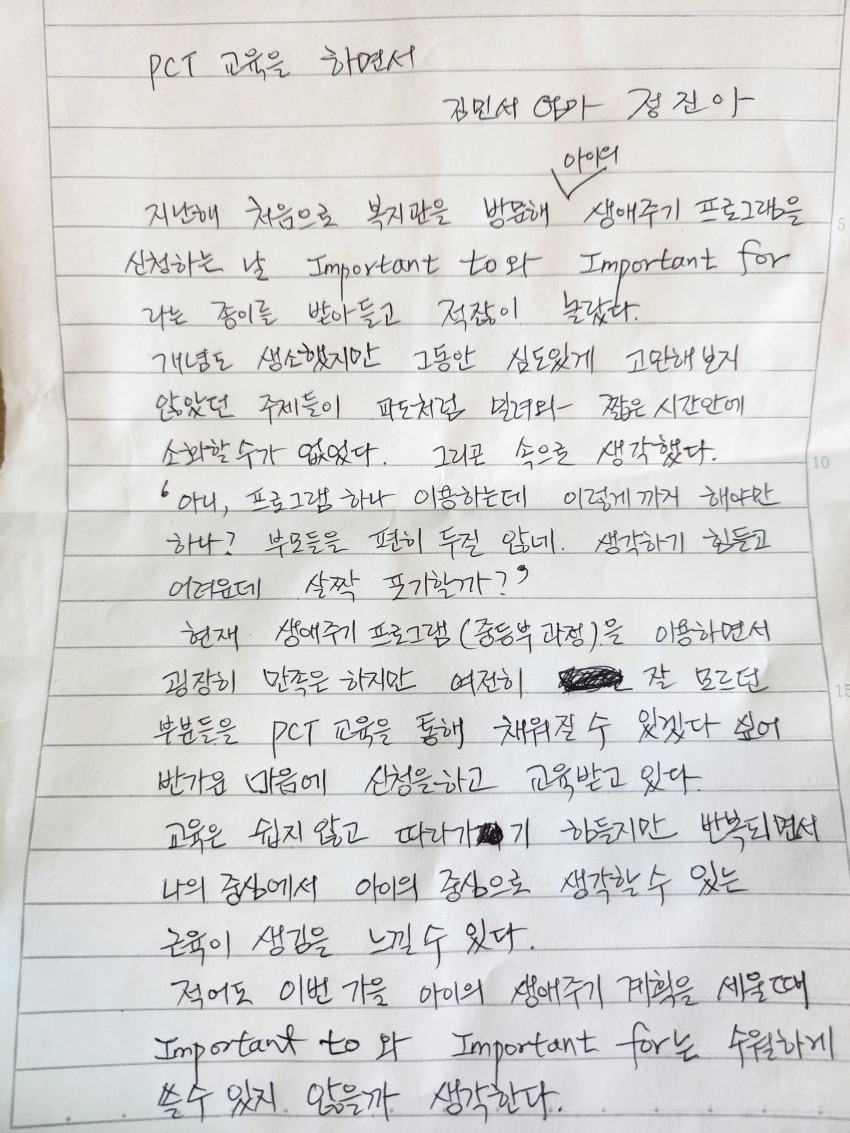 PCT 교육을 하면서
김민서 엄마 정진아
아이의
지난해 처음으로 복지관을 방문해 생애주기 프로그램을
신청하는 날 Important to와 Important for
라는 종이를 받아들고 적잖이 놀랐다.
개념도 생소했지만 그동안 심도있게 고민해보지
않았던 주제들이 파도처럼 밀려와 짧은 시간안에
소화할 수가 없었다. 그리곤 속으로 생각했다.
'아니, 프로그램 하나 이용하는데 이렇게까지 해야만
하나? 부모들을 편히 두질 않네. 생각하기 힘들고
어려운데 살짝 포기할까?'
현재 생애주기 프로그램(중등부 과정)을 이용하면서
굉장히 만족은 하지만 여전히 잘 모르던
부분들을 PCT 교육을 통해 채워질 수 있겠다 싶어
반가운 마음에 신청을 하고 교육받고 있다.
교육은 쉽지 않고 따라가기 힘들지만 반복되면서
나의 중심에서 아이의 중심으로 생각할 수 있는
근육이 생김을 느낄 수 있다.
적어도 이번 가을 아이의 생애주기 계획을 세울때
Important to 와 Important for는 수월하게
쓸수 있지 않을까 생각한다.
5
10
15